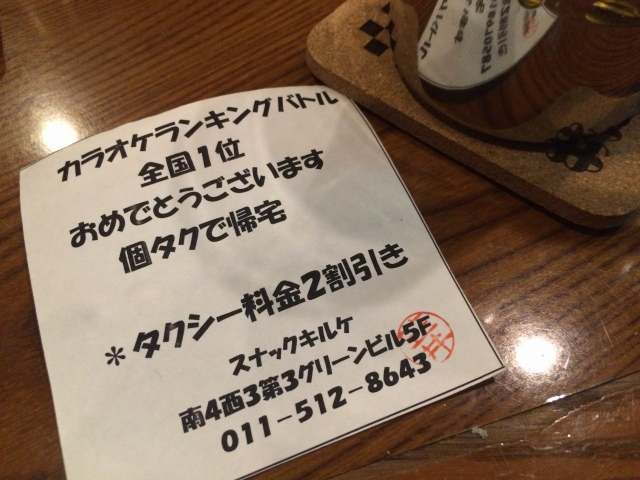 カラオケランキングバトル
全国1位
おめでとうございます
個タクで帰宅
＊タクシー料金2割引き
スナックキルケ
南4西3第3グリーンビル5F
011-512-8643